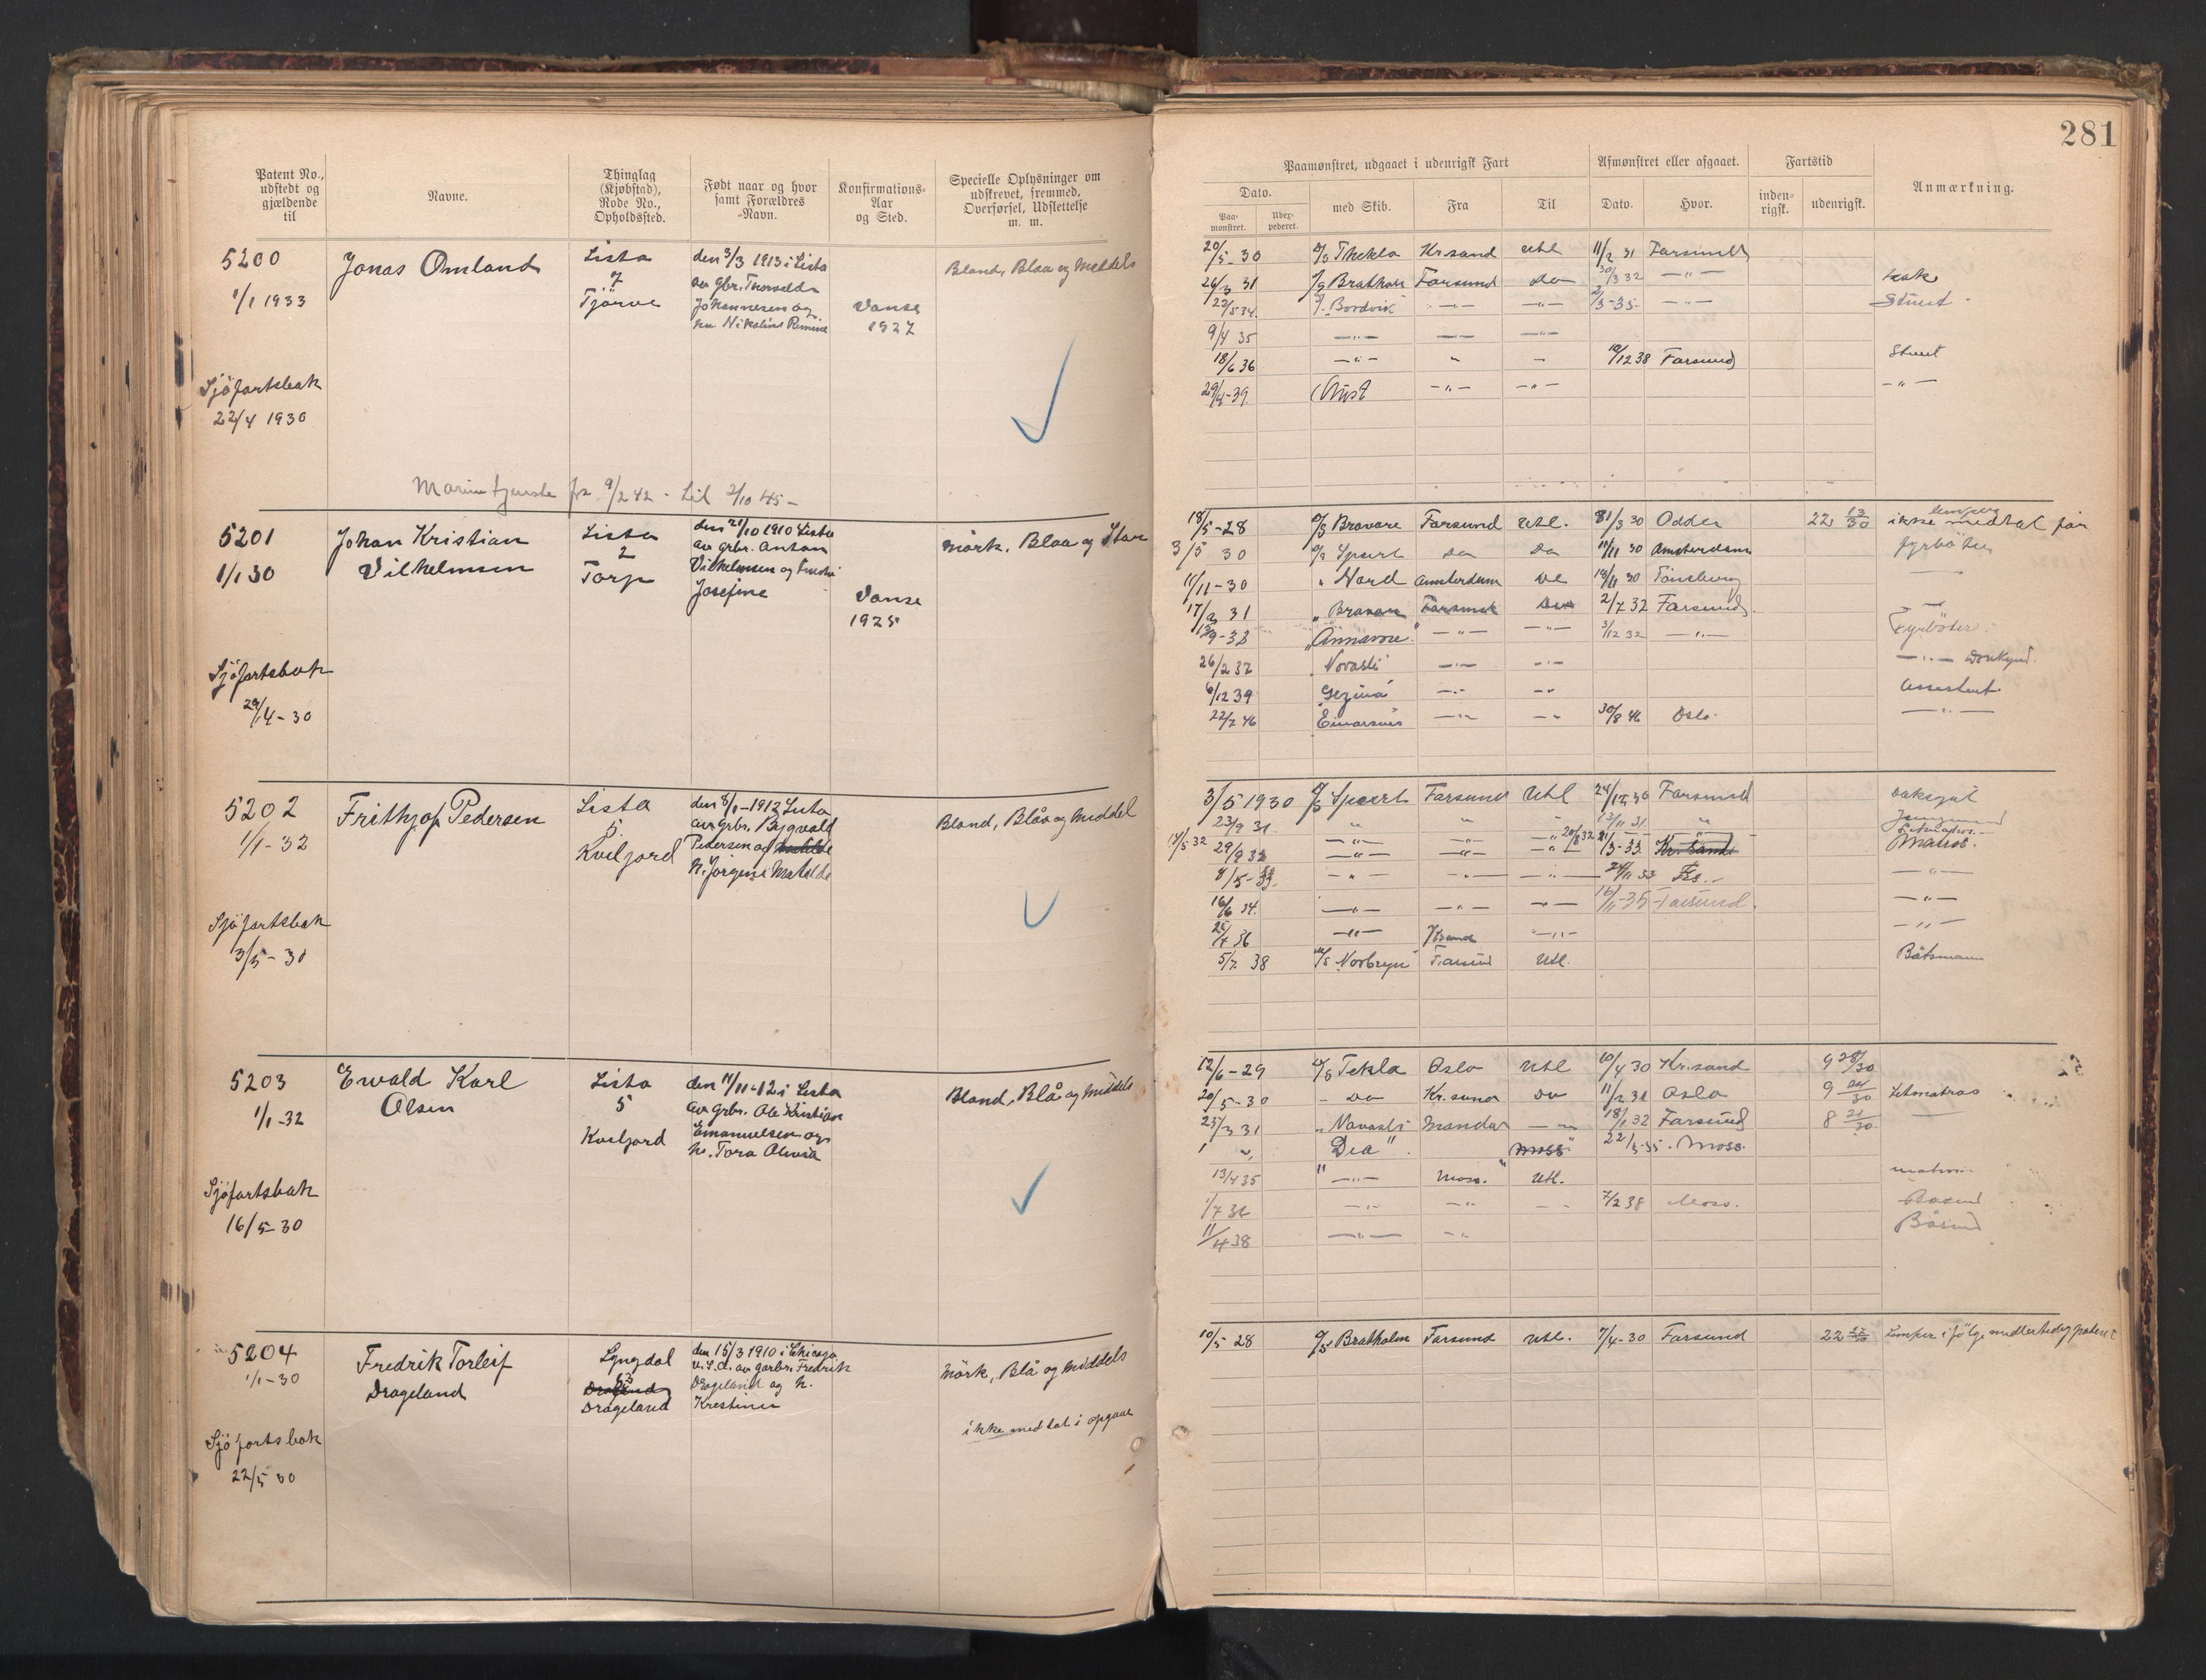 281
Patent No., udstedt og gjældende til
Navne.
Thinglag (Kjøbstad), Rode No., Opholdssted.
Født naar og hvor samt Forældres Navn.
Konfirmations-Aar og Sted.
Specielle Oplysninger om udskrevet, fremmed, Overførsel, Udslettelse m. m.
Paamønstret, udgaaet i udenrigsk Fart
Afmønstret eller afgaaet.
Fartstid
Anmærkning.
Dato.
Paa-mønstret.
Udex-pederet.
med Skib.
Fra
Til
Dato.
Hvor.
inden-rigsk.
udenrigsk.
5200
1/1 1933
Sjöfartsbok
22/4 1930
Jonas Omland
Lista
7
Tjörve
den 3/3 1913 i Lista
av gbr. Thorvald
Johannesen og
Vanse
1927
Bland, Blaa og Middels
Marinetjeneste fra 9/2 42 - til 2/10 45 -
20/5-30 Thekla Kr.sand Utl 11/2 31 Farsund
26/3 31 Bratholm Farsund Do 30/3 32 —"—
22/5 34. Bordvik —"— —"— 2/3-35. —"— Stuert
9/4 35 —"— —"— —"—
18/6 36 —"— " — 10/12 38 Farsund Stuert
29/4-39. —"— —"— —"—
5201
1/1 30
Sjöfartsbok
29/4-30
Johan Kristian
Vilhelmsen
Lista
2
Torp
den 21/10 1910 Lista
av grbr. Anton
Vilhelmsen og
Josefine
Vanse
1925
Mörk, Blaa og Stor
18/5-28 Bravore Farsund Utl. 31/3 30 Odda 22 13/30 ikke medtat för
3/5 30 Spurt Do Do 11/11 30 Amsterdam Fyrböter
11/11-30 " Nord Amsterdam Do 19/11 30 Tönsberg
17/2 31 " Bravore Farsund Do 2/7 32 Farsund.
13/9-33 "Annavore" —"— —"— 3/12 32 —"— Fyrböter
26/2 37 Novasli —"— —"— —"— Donkym.
6/12 39 Gezina —"— —"— Assistent
22/7 46 Einarsnes —"— —"— 30/8 46 Oslo. —"—
5202
1/1-32
Sjöfartsbok
3/5-30
Frithjof Pedersen
Lista
5.
Kviljord
den 8/1-1912 Lista
av grbr. Bygvald
Pedersen og
h. Jörgine Matilde
Bland, Blåa og Middel
3/5 1930 Spurt Farsund Utl 24/12 30 Farsund Dæksgut
23/9 31. " " " 13/11 31. " Jungmand
14/5 32 —"— —"— —"— 20/8 32 Letmatros.
29/9 32 —"— —"— —"— 21/3-33. Kr.sand Matros.
4/5-33. —"— —"— —"— 24/11 33 Fs. —"—
16/6 34. —"— —"— —"— 16/11-35 Farsund. —"—
—"— —"— —"—
5/7 38 Norbryn Farsund Utl. Båtsmann
5203
1/1-32
Sjöfartsbok
16/5-30
Ewald Karl
Olsen
Lista
5
Kviljord
den 11/11-12 i Lista
av grbr. Ole Kristian
Emanuelsen og
h. Tora Olivia
Bland, Blå og Middels
12/6-29 Tekla Oslo Utl 10/4 30 Kr.sand 9 28/30
20/5-30 - Do Kr.sand Do 11/2 31 Oslo 9 24/30 Letmatros
25/3 31 " Navasli Mandal —"— 18/1 32 Farsund 8 21/30
"Dea" Moss 22/3-35. Moss.
13/4 35 —"— Moss. Utl. matros.
1/7 36 —"— —"— — 7/2 38 Moss.
11/4 38 —"— —"—
5204
1/1-30
Sjöfartsbok
22/5 30
Fredrik Torleif
Drageland
Lyngdal
Drageland
den 15/3 1910 i Chicago
U.S.A. av garbr. Fredrik
Drageland og h.
Krestine
Mörk, Blå og Middels
ikke medtat i opgave
10/5 28 Bratholm Farsund Utl. 7/4-30 Farsund 22 Lemper i fölge midlertidig patent